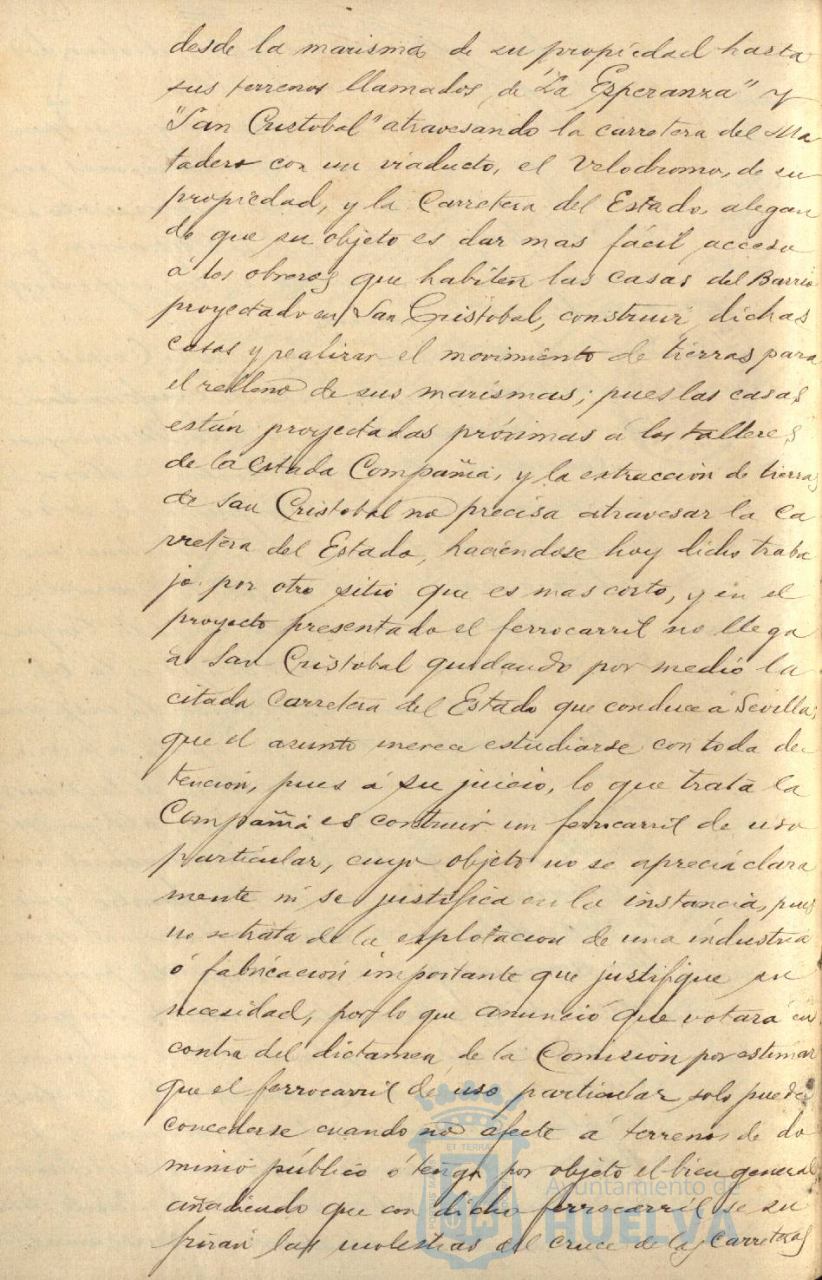 desde la marisma de su propiedad hasta
sus terrenos llamados de "La Esperanza" y
"San Cristobal" atravesando la carretera del Ma
tadero con un viaducto, el Velodromo, de su
propiedad, y la Carretera del Estado, alegan
do que su objeto es dar mas fácil acceso
á los obreros que habiten las casas del Barrio
proyectado en San Cristobal, construir dichas
casas y realizar el movimiento de tierras para
el relleno de sus marismas; pues las casas
están proyectadas próximas a los talleres
de la citada Compañia, y la extracción de tierras
de San Cristobal no precisa atravesar la ca
rretera del Estado, haciendose hoy dicho traba
jo por otro sitio que es mas corto, y en el
proyecto presentado el ferrocarril no llega
á San Cristobal quedando por medio la
citada Carretera del Estado que conduce á Sevilla;
que el asunto merece estudiarse con toda de
tención, pues á su juicio, lo que trata la
Compañia es construir un ferrocarril de uso
particular, cuyo objeto no se aprecia clara
mente ni se justifica en la instancia, pues
no se trata de la explotacion de una industria
ó fabricación importante que justifique su
necesidad, por lo que anunció que votará en
contra del dictamen de la Comisión por estimar
que el ferrocarril de uso particular solo puede
concederse cuando no afecte á terrenos de do
minio público ó tenga por objeto el bien general
añadiendo que con dicho ferrocarril se su
frirán las molestias del cruce de las carretas
ET TERRA
Ayuntamiento de
HUELVA